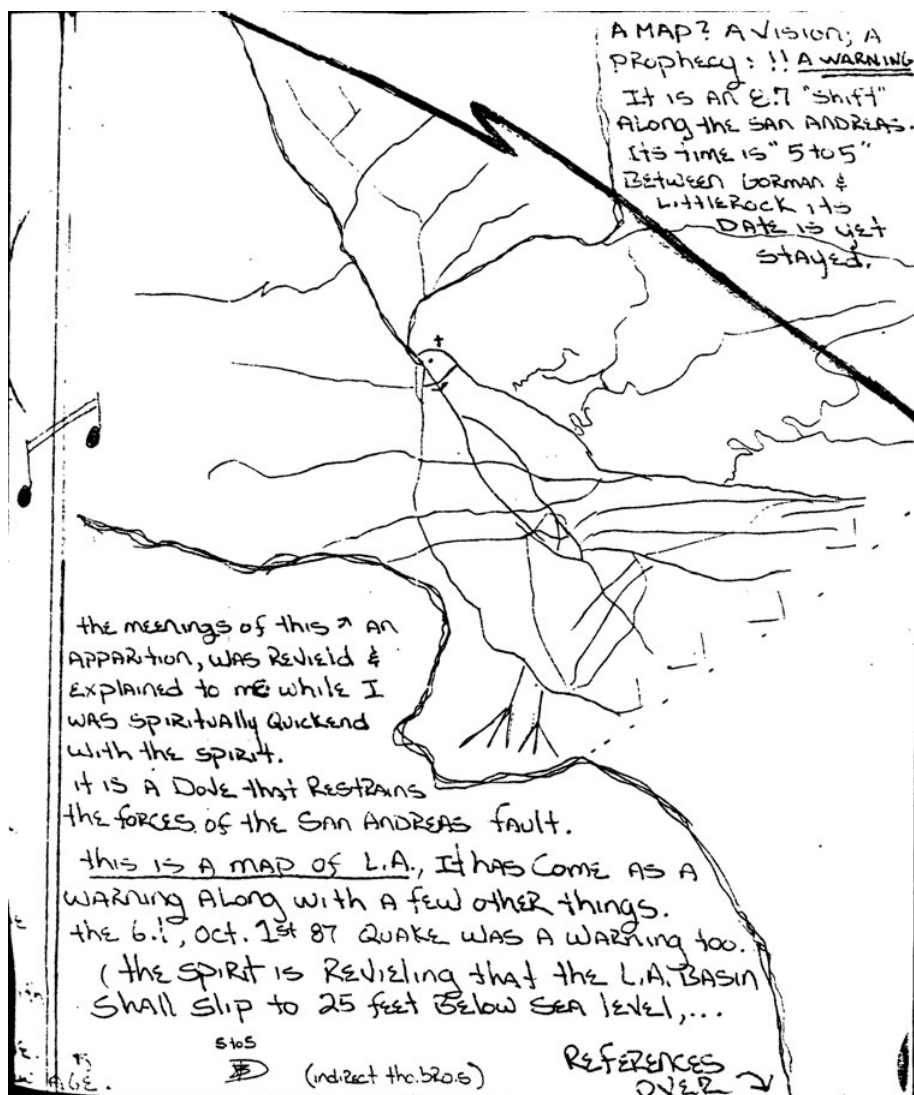 A MAP? A VISION; A
PROPHECY: !! A WARNING
It is AN 8.7 "Shift"
Along the SAN ANDREAS.
Its time is "5 to 5"
Between Gorman &
Littlerock its
Date is yet
stayed.
the meenings of this AN
APPARition, WAS REVIEld &
Explained to me while I
WAS SPIRitUAlly Quickend
With the SPIRit.
it is A Dove that Restrains
the forces of the SAN ANDREAS fault.
this is A map of L.A., It has Come AS A
WARNING Along with A few other things.
the 6.1, Oct. 1st 87 QUAKE WAS A WARNING too.
(the SPIRit is Revieling that the L.A. BASIN
Shall Slip to 25 feet Below SEA level,...
5 to 5
(indirect tho.bzo.s)
REFERENCES
OVER